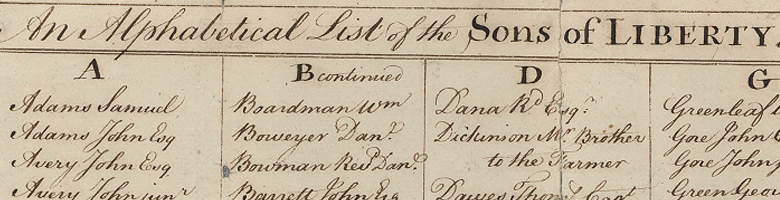 An Alphabetical List of the Sons of LIBERTY
A
Adams Samuel
Adams John Esq
Avery John Esq
Avery John junr
B continued
Boardman Wm
Boweyer Danl
Bowman Revd Danl
Barrett John Esq
D
Dana Rd Esqr
Dickinson Mr Brother
to the Farmer
Dawes Thos Capt
G
Greenleaf
Gore John
Gore John
Green Geo